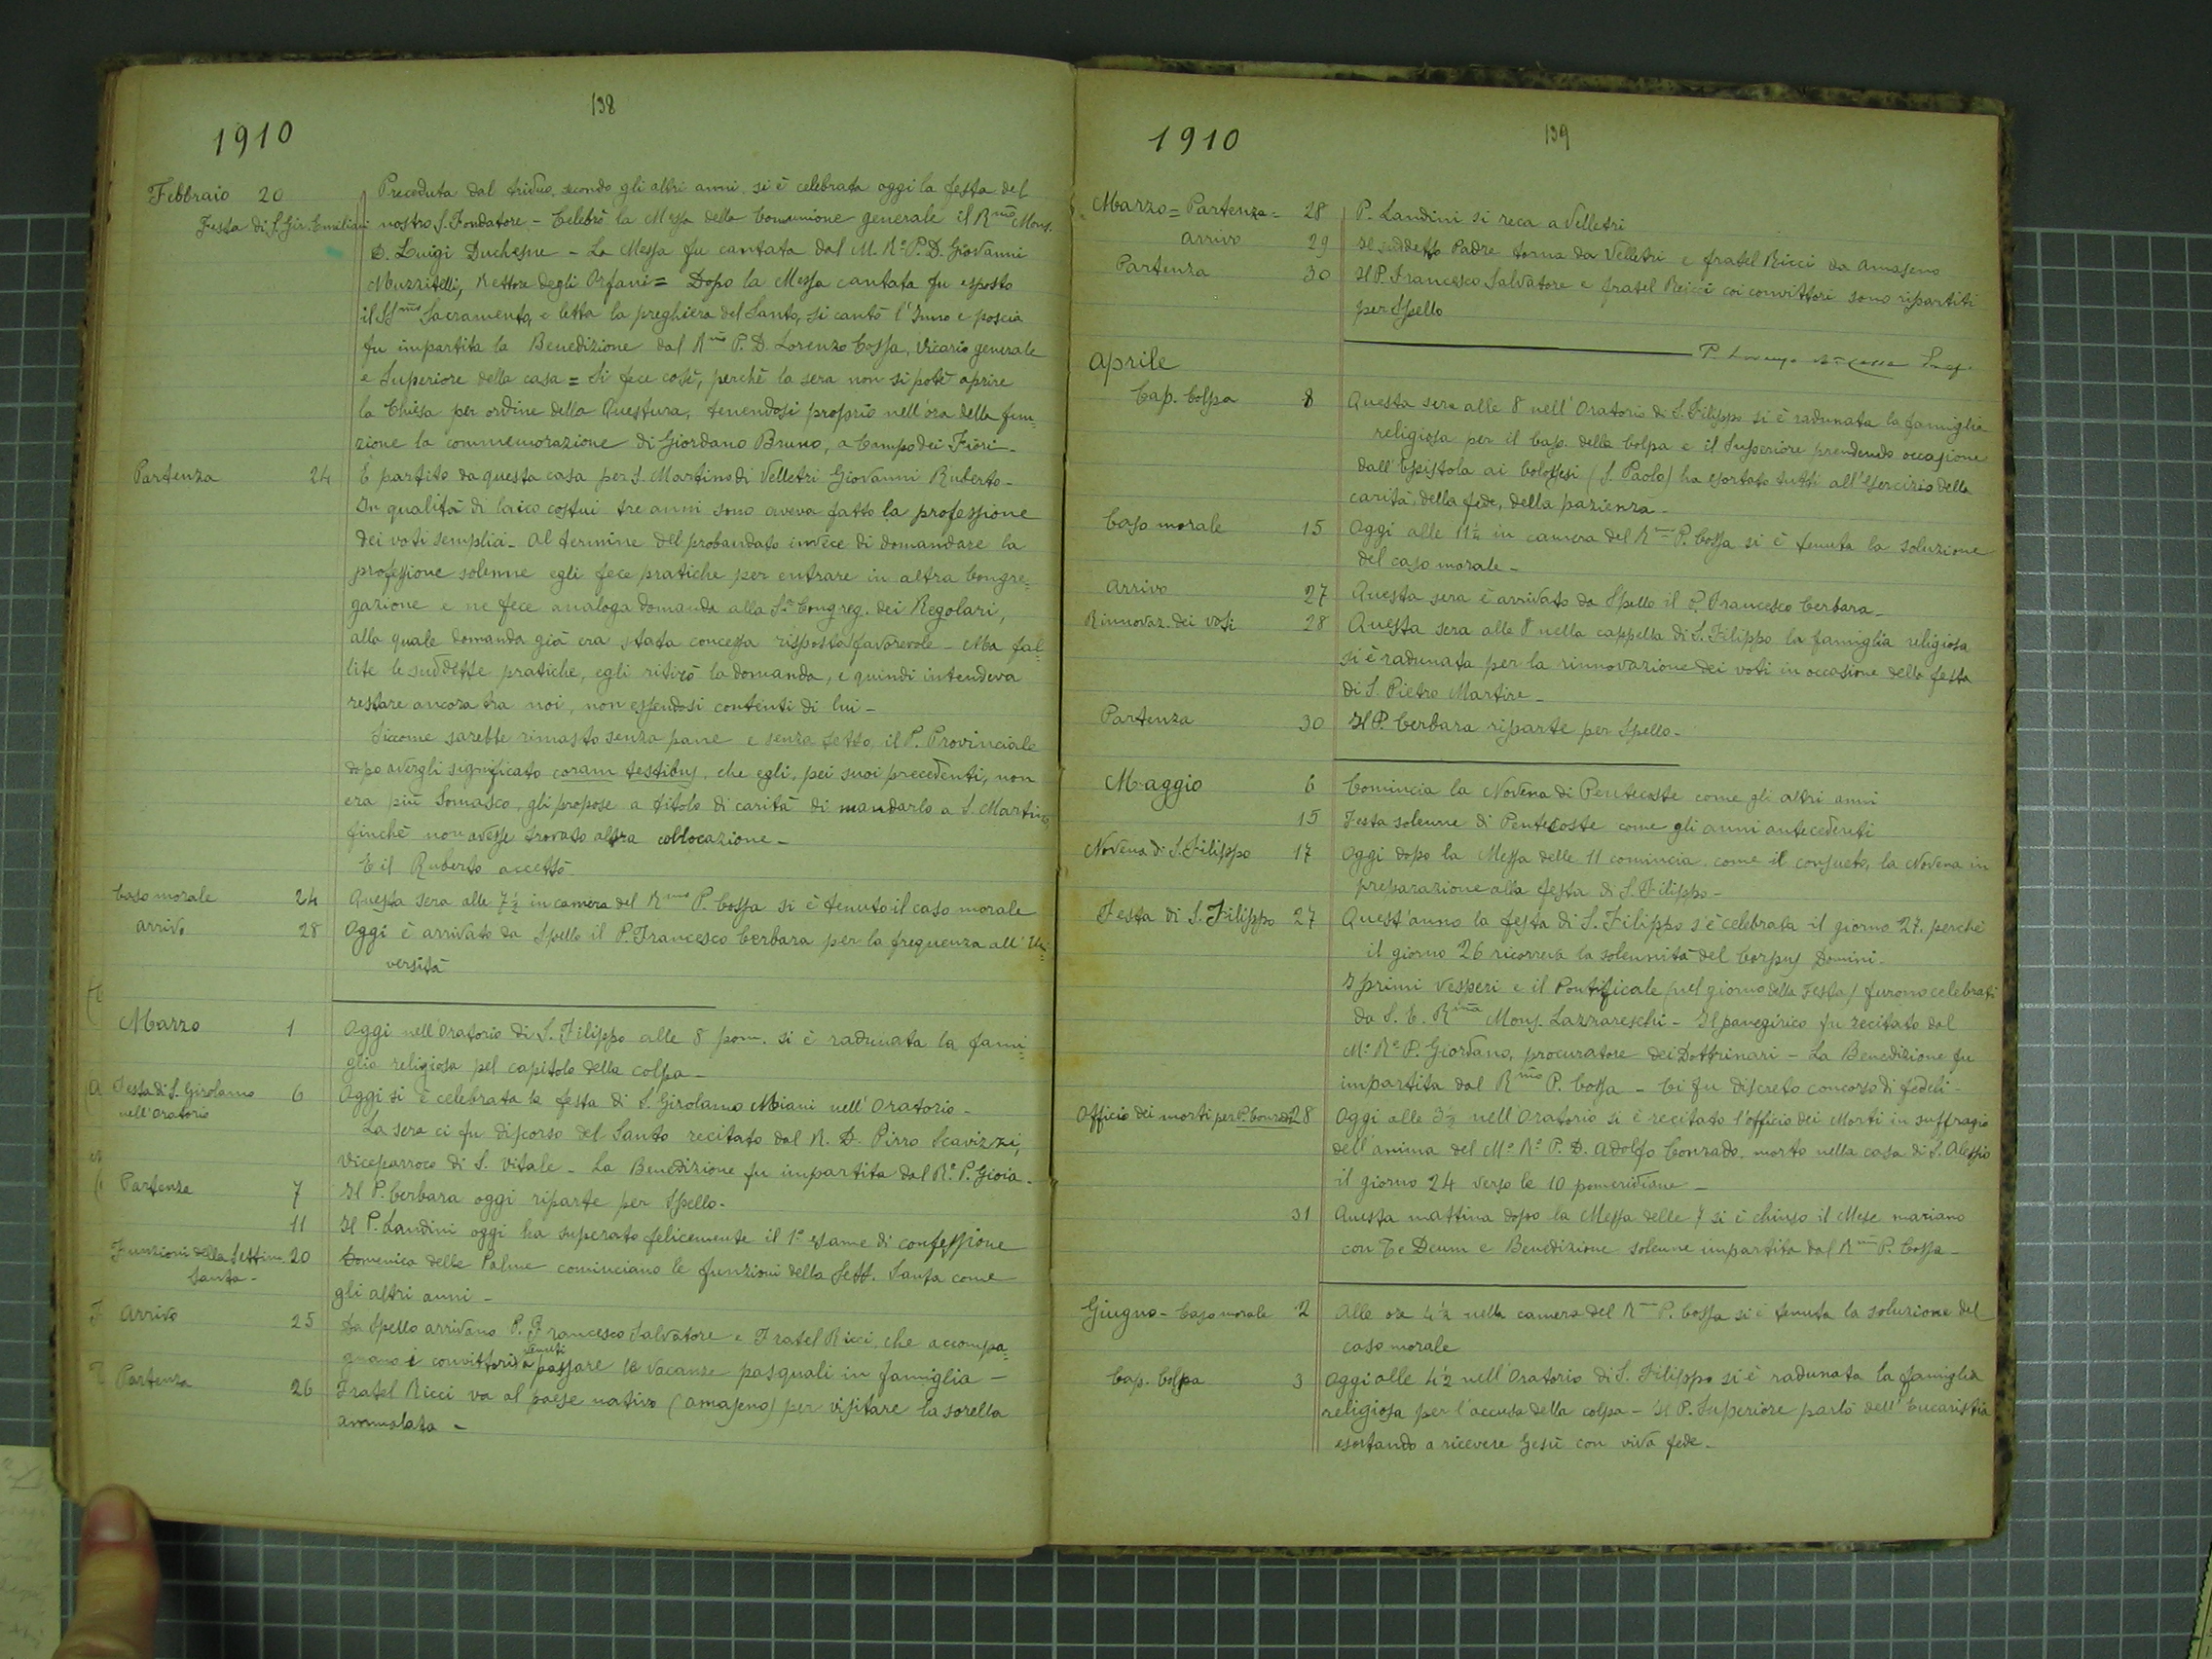 138
1910
Febbraio 20 Preceduta dal triduo, secondo gli altri anni, si è celebrata oggi la festa del
Festa di S. Gir. Emiliani nostro S. Fondatore - Celebrò la Messa della Comunione generale il Rmo Mons.
D. Luigi Duchesne - La Messa fu cantata dal M. Rº P. D. Giovanni
Muzzitelli, Rettore degli Orfani = Dopo la Messa cantata fu esposto
il SSmo Sacramento, e letta la preghiera del Santo, si cantò l'Inno e poscia
fu impartita la Benedizione dal Rmo P. D. Lorenzo Cossa, Vicario generale
e Superiore della casa = Si fece così, perchè la sera non si potè aprire
la Chiesa per ordine della Questura, tenendosi proprio nell'ora della fun=
zione la commemorazione di Giordano Bruno, a Campo dei Fiori -
Partenza 24 È partito da questa casa per S. Martino di Velletri Giovanni Ruberto -
In qualità di laico costui tre anni sono aveva fatto la professione
dei voti semplici - Al termine del probandato invece di domandare la
professione solenne egli fece pratiche per entrare in altra Congre=
gazione e ne fece analoga domanda alla Sª Congreg. dei Regolari,
alla quale domanda già era stata concessa risposta favorevole - Ma fal=
lite le suddette pratiche, egli ritirò la domanda, e quindi intendeva
restare ancora tra noi, non essendosi contenti di lui -
Siccome sarebbe rimasto senza pane e senza tetto, il P. Provinciale
dopo avergli significato coram testibus, che egli, pei suoi precedenti, non
era più Somasco, gli propose a titolo di carità di mandarlo a S. Martino,
finchè non avesse trovato altra collocazione -
E il Ruberto accettò -
Caso morale 24 Questa sera alle 7½ in camera del Rmo P. Cossa si è tenuto il caso morale
arrivo 28 Oggi è arrivato da Spello il P. Francesco Cerbara per la frequenza all'Uni=
versità
Marzo 1 Oggi nell'Oratorio di S. Filippo alle 8 pom. si è radunata la fami=
glia religiosa pel capitolo della colpa -
Festa di S. Girolamo nell'Oratorio 6 Oggi si è celebrata la festa di S. Girolamo Miani nell'Oratorio -
La sera ci fu discorso del Santo recitato dal R. D. Pirro Scavizzi,
Viceparroco di S. Vitale - La Benedizione fu impartita dal Rº. P. Gioia -
Partenza 7 Il P. Cerbara oggi riparte per Spello -
11 Il P. Landini oggi ha superato felicemente il 1º esame di confessione
Funzioni della Settim. Santa - 20 Domenica delle Palme cominciano le funzioni della Sett. Santa come
gli altri anni -
Arrivo 25 Da Spello arrivano P. Francesco Salvatore e Fratel Ricci, che accompa=
gnano i convittori venuti a passare le vacanze pasquali in famiglia -
Partenza 26 Fratel Ricci va al paese nativo (Amaseno) per visitare la sorella
ammalata -
139
1910
Marzo = Partenza = 28 P. Landini si reca a Velletri
arrivo 29 Il suddetto Padre torna da Velletri e fratel Ricci da Amaseno
Partenza 30 Il P. Francesco Salvatore e fratel Ricci coi convittori sono ripartiti
per Spello
P. Lorenzo Cossa
Aprile
Cap. Colpa 8 Questa sera alle 8 nell'Oratorio di S. Filippo si è radunata la famiglia
religiosa per il Cap. della Colpa e il Superiore prendendo occasione
dall'Epistola ai Colossesi (S. Paolo) ha esortato tutti all'esercizio della
carità, della fede, della pazienza -
Caso morale 15 Oggi alle 11½ in camera del Rmo P. Cossa si è tenuta la soluzione
del caso morale -
Arrivo 27 Questa sera è arrivato da Spello il P. Francesco Cerbara -
Rinnovaz. dei voti 28 Questa sera alle 8 nella cappella di S. Filippo la famiglia religiosa
si è radunata per la rinnovazione dei voti in occasione della festa
di S. Pietro Martire -
Partenza 30 Il P. Cerbara riparte per Spello -
Maggio 6 Comincia la Novena di Pentecoste come gli altri anni
15 Festa solenne di Pentecoste come gli anni antecedenti
Novena di S. Filippo 17 Oggi dopo la Messa delle 11 comincia, come il consueto, la Novena in
preparazione alla festa di S. Filippo -
Festa di S. Filippo 27 Quest'anno la festa di S. Filippo s'è celebrata il giorno 27, perchè
il giorno 26 ricorreva la solennità del Corpus Domini.
I primi Vesperi e il Pontificale (nel giorno della Festa) furono celebrati
da S. E. Rma Mons. Lazzareschi - Il panegirico fu recitato dal
Mº. Rº P. Giordano, procuratore dei Dottrinari - La Benedizione fu
impartita dal Rmo P. Cossa - Ci fu discreto concorso di fedeli -
Officio dei morti per P. Conrado 28 Oggi alle 3½ nell'Oratorio si è recitato l'officio dei Morti in suffragio
dell'anima del Mº Rº P. D. Adolfo Conrado, morto nella casa di S. Alessio
il giorno 24 verso le 10 pomeridiane -
31 Questa mattina dopo la Messa delle 7 si è chiuso il Mese mariano
con Te Deum e Benedizione solenne impartita dal Rmo P. Cossa -
Giugno - Caso morale 2 Alle ore 4½ nella camera del Rmo P. Cossa si è tenuta la soluzione del
caso morale
Cap. Colpa 3 Oggi alle 4½ nell'Oratorio di S. Filippo si è radunata la famiglia
religiosa per l'accusa della colpa - Il P. Superiore parlò dell'Eucaristia
esortando a ricevere Gesù con viva fede -